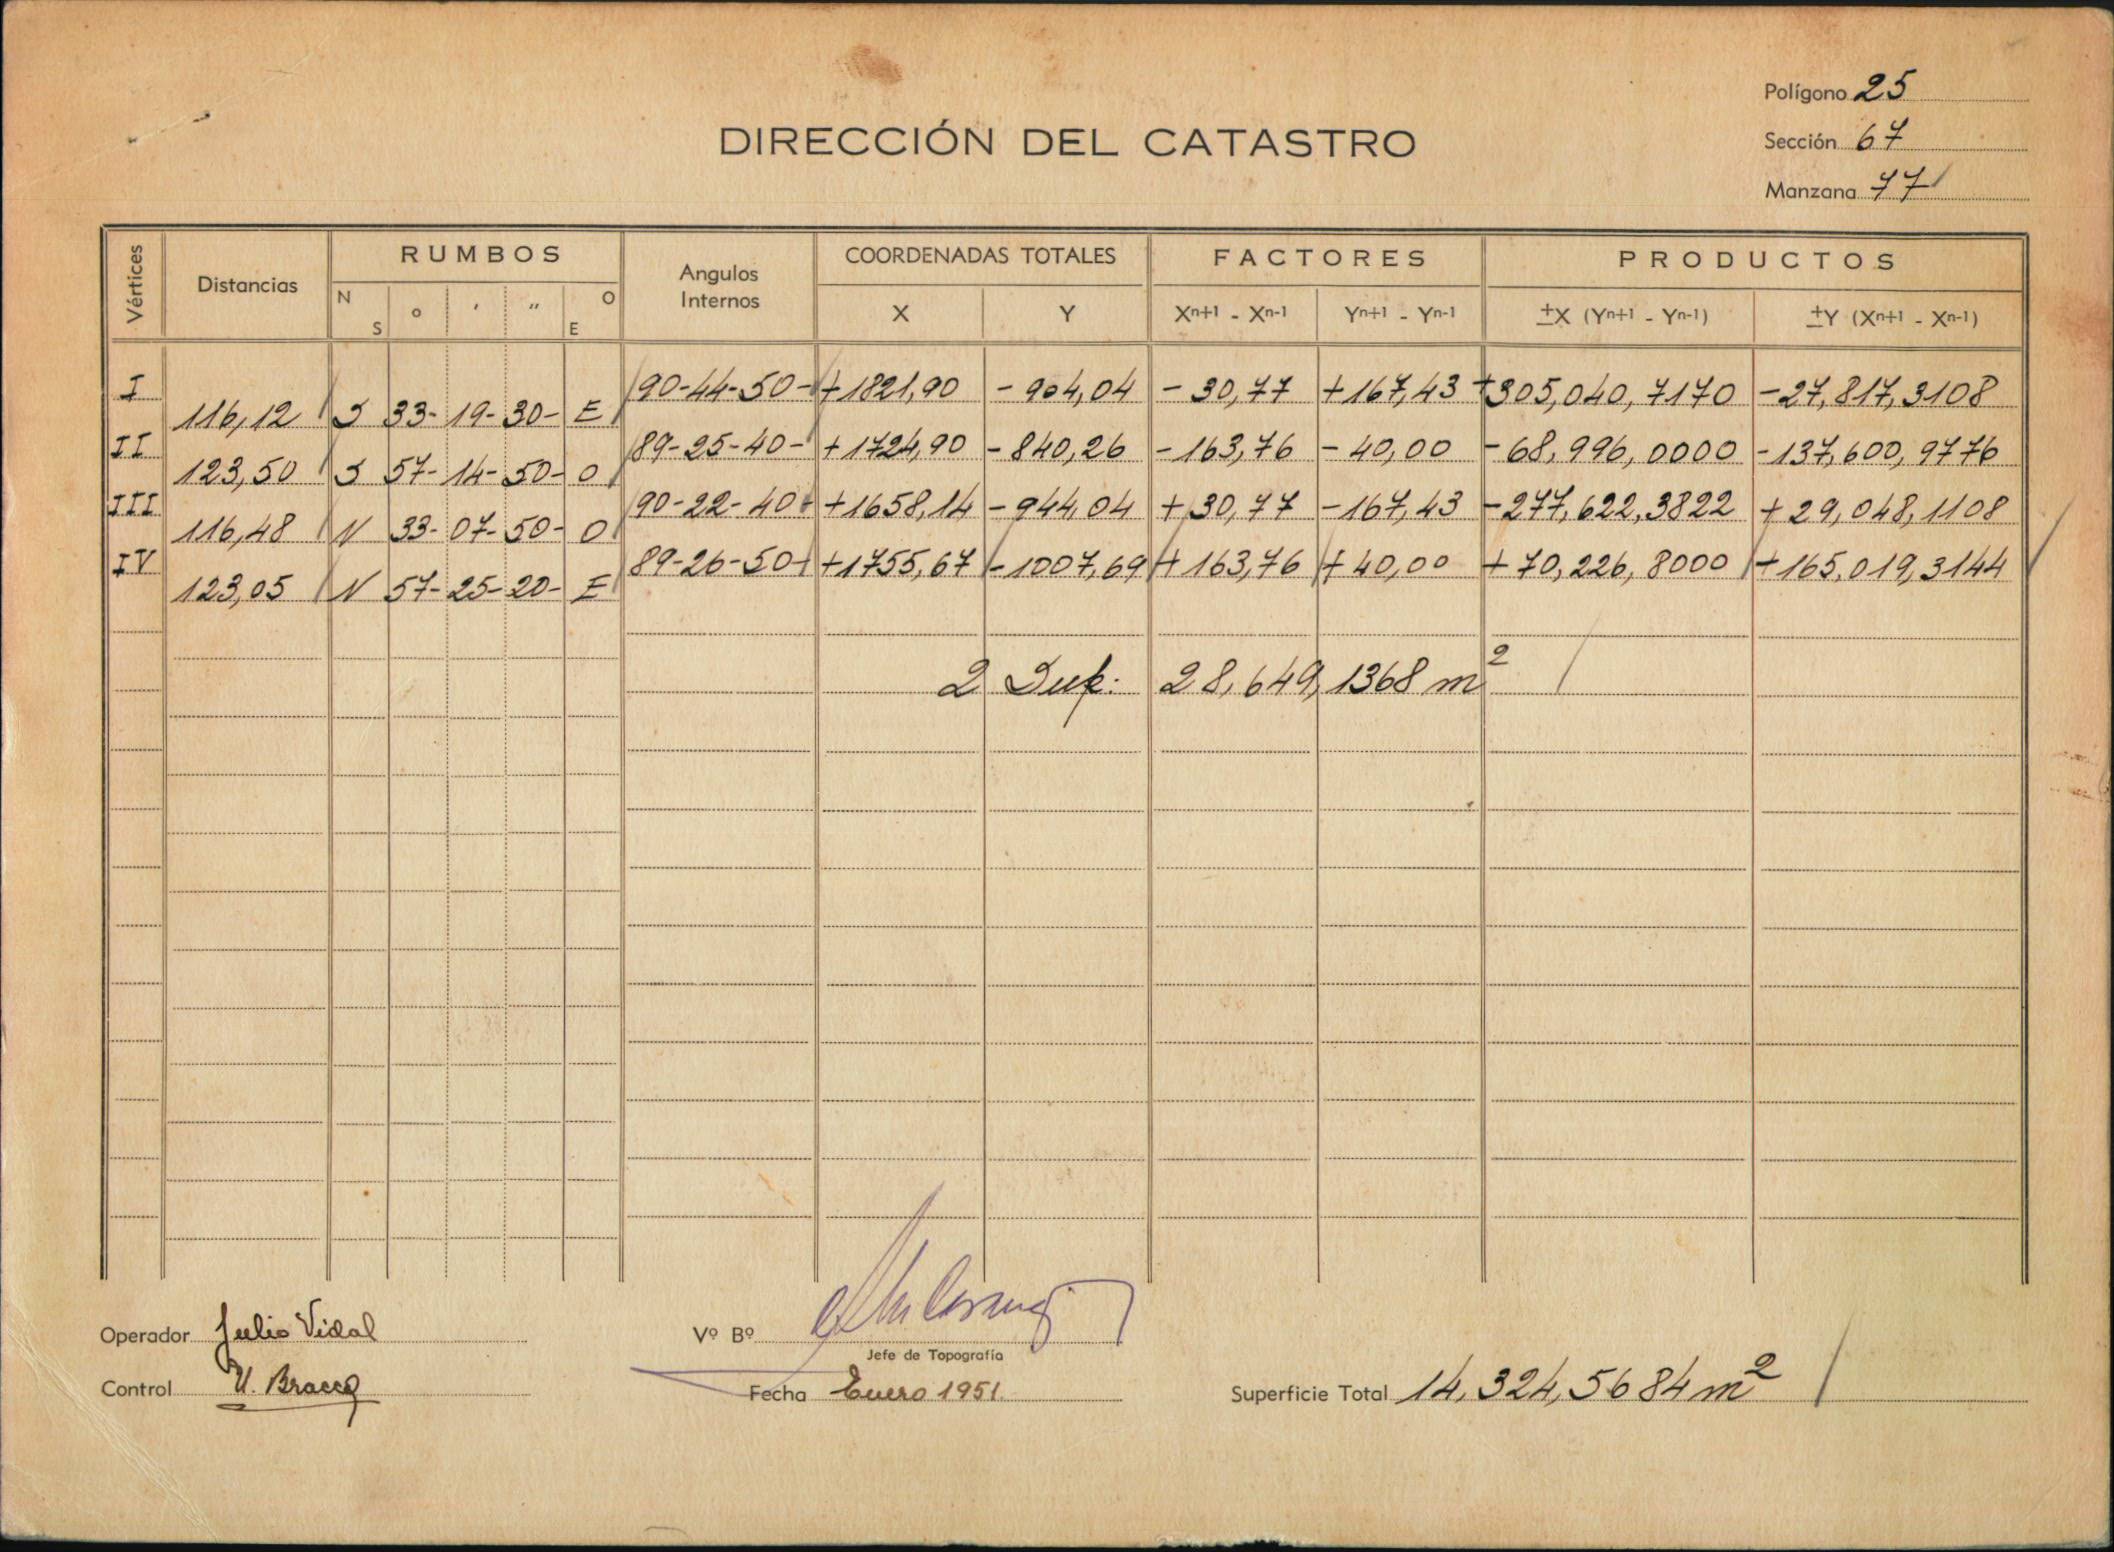 Polígono 25
DIRECCIÓN DEL CATASTRO
Sección 67
Manzana 77
Vértices Distancias RUMBOS Angulos Internos COORDENADAS TOTALES FACTORES PRODUCTOS
N S ° ' " O E X Y Xn+1 - Xn-1 Yn+1 - Yn-1 ±X (Yn+1 - Yn-1) ±Y (Xn+1 - Xn-1)
I 90-44-50- +1821,90 -904,04 -30,77 +167,43 +305,040,7170 -27,817,3108
116,12 S 33- 19- 30- E
II 89-25-40- +1724,90 -840,26 -163,76 -40,00 -68,996,0000 -137,600,9776
123,50 S 57- 14- 50- O
III 90-22-40- +1658,14 -944,04 +30,77 -167,43 -277,622,3822 +29,048,1108
116,48 N 33- 07- 50- O
IV 89-26-50- +1755,67 -1007,69 +163,76 +40,00 +70,226,8000 +165,019,3144
123,05 N 57- 25- 20- E
2 Sup. 28,649,1368 m²
Operador Julio Vidal
Vº Bº
Jefe de Topografía
Control U. Bracco
Fecha Enero 1951.
Superficie Total 14,324,5684 m²